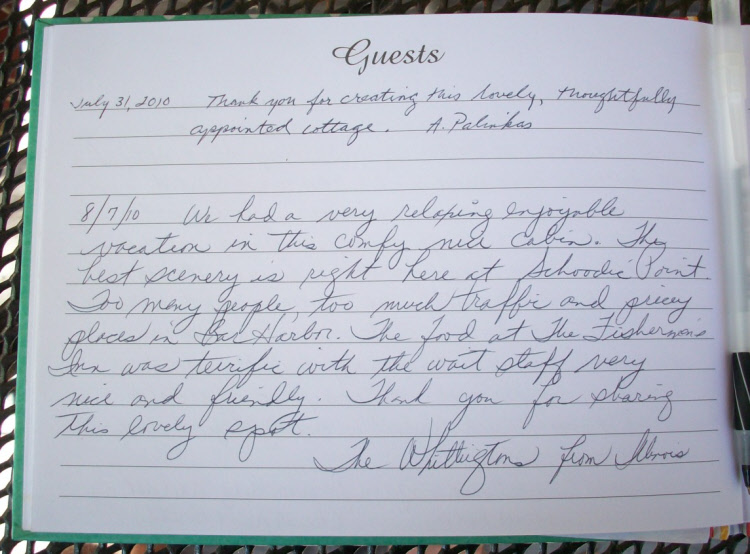 Guests
July 31, 2010 Thank you for creating this lovely, thoughtfully
appointed cottage. A. Palinkas
8/7/10 We had a very relaxing enjoyable
vacation in this comfy nice cabin. The
best scenery is right here at Schoodic Point.
Too many people, too much traffic and pricey
places in Bar Harbor. The food at The Fisherman's
Inn was terrific with the wait staff very
nice and friendly. Thank you for sharing
this lovely spot.
The Whittingtons from Illinois